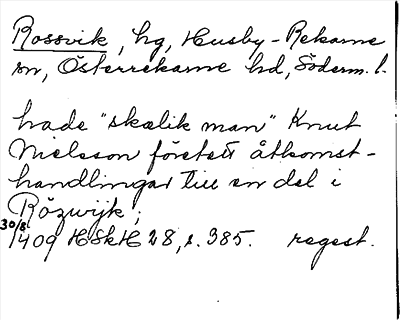 Rossvik, hg, Husby-Rekarne
sn, Österrekarne hd, Söderm. l.
hade "skælik man" Knut
Nielsson företett åtkomst-
handlingar till en del i
Rözwijk;
30/8 1409 HSkH 28, s. 385. regest.